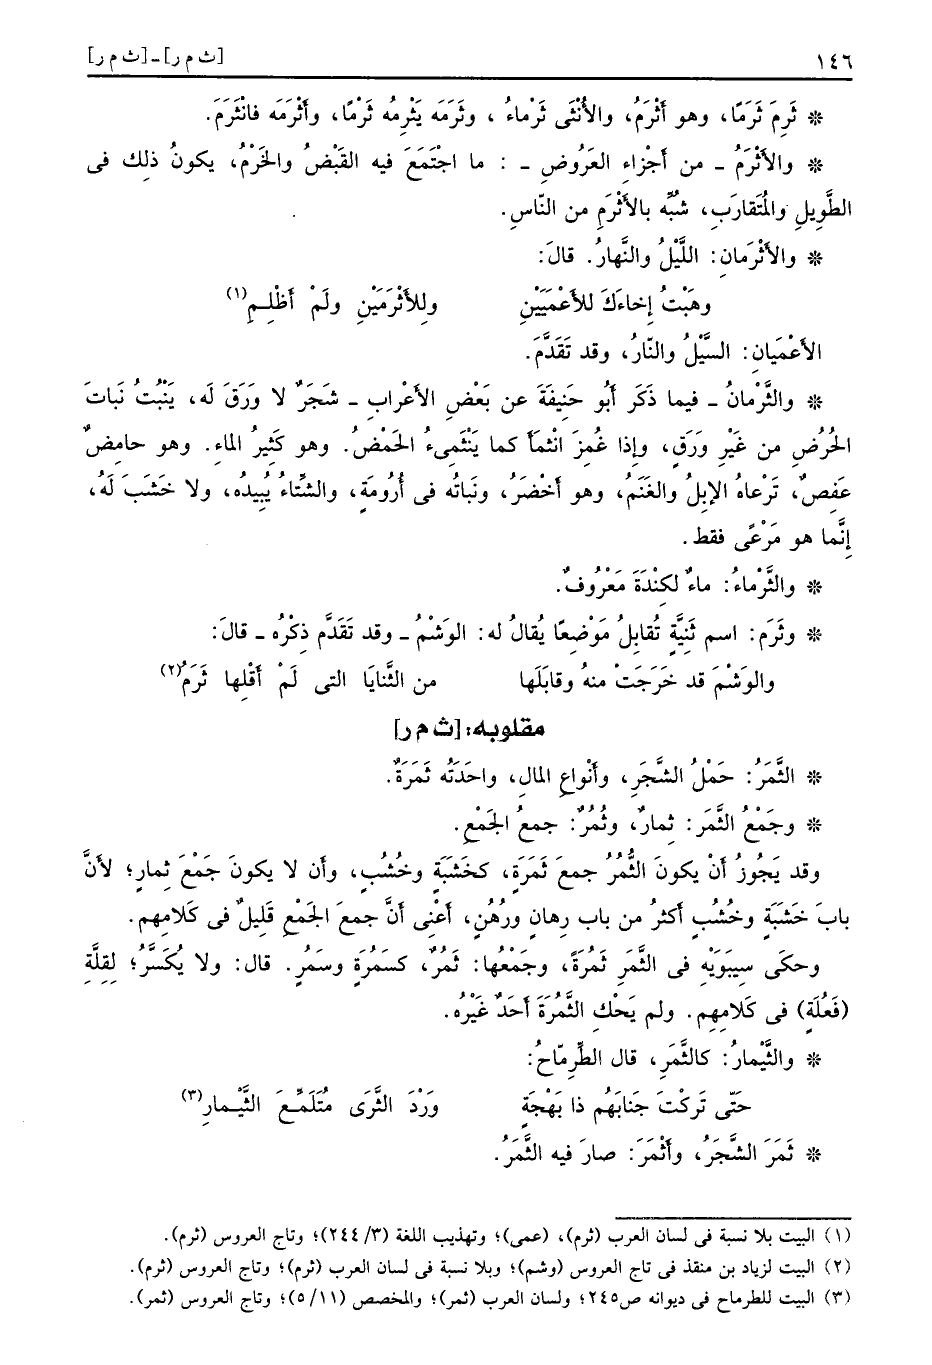 ١٤٦ [ث م ر] ـ [ث م ر]
* ثَرِمَ ثَرَمًا، وهو أَثْرَمُ، والأُنْثَى ثَرْماءُ ، وثَرَمَه يَثْرِمُه ثَرْمًا، وأَثْرَمَه فانْثَرَمَ.
* والأَثْرَمُ ـ من أَجْزاءِ العَرُوضِ ـ : ما اجْتَمَعَ فيه القَبْضُ والخَرْمُ، يكونُ ذلك فى
الطَّوِيلِ والمُتَقارَبِ، شُبِّه بالأَثْرَمِ من النّاسِ.
* والأَثْرَمانِ: اللَّيْلُ والنَّهارُ. قالَ:
وهَبْتُ إخاءَكَ للأَعْمَيَيْنِ وللأَثْرَمَيْنِ ولَمْ أَظْلِـمِ(١)
الأَعْمَيانِ: السَّيْلُ والنّارُ، وقد تَقَدَّمَ.
* والثَّرْمانُ ـ فيما ذَكَر أَبُو حَنِيفَةَ عن بَعْضِ الأَعْرابِ ـ شَجَرٌ لا وَرَقَ لَه، يَنْبُتُ نَباتَ
الحُرُضِ من غَيْرِ وَرَقٍ، وإذا غُمِزَ انْثَمأَ كما يَنْثَمِىءُ الحَمْضُ. وهو كَثِيرُ الماءِ. وهو حامِضٌ
عَفِصٌ، تَرْعاهُ الإبلُ والغَنَمُ، وهو أَخْضَرُ، ونَباتُه فى أُرُومَةٍ، والشِّتاءُ يُبِيدُه، ولا خَشَبَ لَهُ،
إنَّما هو مَرْعًى فقط.
* والثَّرْماءُ: ماءٌ لكِنْدَةَ مَعْرُوفٌ.
* وثَرَم: اسم ثَنِيَّةٍ تُقابلُ مَوْضِعًا يُقالُ له: الوَشْمُ ـ وقد تَقَدَّم ذِكْرُه ـ قالَ:
والوَشْمَ قد خَرَجَتْ منهُ وقابَلَها من الثَّنايَا التى لَمْ أَقْلِها ثَرَمُ(٢)
مقلوبه: [ث م ر]
* الثَّمَرُ: حَمْلُ الشَّجَرِ، وأَنْواعِ المالِ، واحَدَتُه ثَمَرَةٌ.
* وجَمْعُ الثَّمَرِ: ثمارٌ، وثُمُرٌ: جمعُ الجَمْعِ.
وقد يَجُوزُ أَنْ يكونَ الثُّمُرُ جمعَ ثَمَرَة، كخَشَبَةٍ وخُشُبٍ، وأن لا يكونَ جَمْعَ ثمارٍ؛ لأَنَّ
بابَ خَشَبَةٍ وخُشُبٍ أكثرُ من باب رِهانٍ ورُهُنٍ، أَعْنِى أنَّ جمعَ الجَمْعِ قَلِيلٌ فى كَلامِهم.
وحكَى سِيبَوَيْهِ فى الثَّمَرِ ثَمُرَةً، وجَمْعُها: ثَمُرٌ، كسَمُرَةٍ وسَمُرٍ. قال: ولا يُكَسَّرُ؛ لِقِلَّة
(فَعُلَةٍ) فى كَلامِهم. ولم يَحْكِ الثَّمُرَةَ أحَدٌ غَيْرُه.
* والثَّيْمارُ: كالثَّمَرِ، قال الطِّرِمّاحُ:
حَتّى تَركْتَ جَنابَهُم ذا بَهْجَةٍ وَرْدَ الثَّرَى مُتَلَمِّـعَ الثَّيْـمارِ(٣)
* ثَمَرَ الشَّجَرُ، وأَثْمَرَ: صارَ فيه الثَّمَرُ.
(١) البيت بلا نسبة فى لسان العرب (ثرم)، (عمى)؛ وتهذيب اللغة (٢٤٤/٣)؛ وتاج العروس (ثرم).
(٢) البيت لزياد بن منقذ فى تاج العروس (وشم)؛ وبلا نسبة فى لسان العرب (ثرم)؛ وتاج العروس (ثرم).
(٣) البيت للطرماح فى ديوانه ص٢٤٥؛ ولسان العرب (ثمر)؛ والمخصص (٥/١١)؛ وتاج العروس (ثمر).